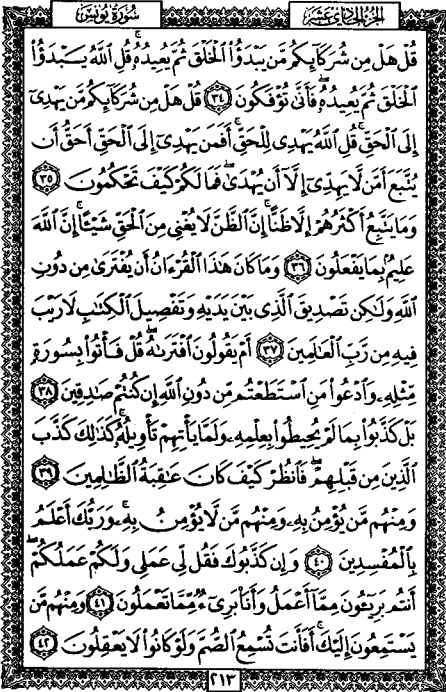 سُورَةُ يُونُسَ
الجُزْءُ الحَادِي عَشَرَ
قُلْ هَلْ مِن شُرَكَآئِكُم مَّن يَبْدَؤُا۟ ٱلْخَلْقَ ثُمَّ يُعِيدُهُۥ ۚ قُلِ ٱللَّهُ يَبْدَؤُا۟
ٱلْخَلْقَ ثُمَّ يُعِيدُهُۥ ۖ فَأَنَّىٰ تُؤْفَكُونَ ٣٤ قُلْ هَلْ مِن شُرَكَآئِكُم مَّن يَهْدِىٓ
إِلَى ٱلْحَقِّ ۚ قُلِ ٱللَّهُ يَهْدِى لِلْحَقِّ ۗ أَفَمَن يَهْدِىٓ إِلَى ٱلْحَقِّ أَحَقُّ أَن
يُتَّبَعَ أَمَّن لَّا يَهِدِّىٓ إِلَّآ أَن يُهْدَىٰ ۖ فَمَا لَكُمْ كَيْفَ تَحْكُمُونَ ٣٥
وَمَا يَتَّبِعُ أَكْثَرُهُمْ إِلَّا ظَنًّا ۚ إِنَّ ٱلظَّنَّ لَا يُغْنِى مِنَ ٱلْحَقِّ شَيْـًٔا ۚ إِنَّ ٱللَّهَ
عَلِيمٌۢ بِمَا يَفْعَلُونَ ٣٦ وَمَا كَانَ هَٰذَا ٱلْقُرْءَانُ أَن يُفْتَرَىٰ مِن دُونِ
ٱللَّهِ وَلَٰكِن تَصْدِيقَ ٱلَّذِى بَيْنَ يَدَيْهِ وَتَفْصِيلَ ٱلْكِتَٰبِ لَا رَيْبَ
فِيهِ مِن رَّبِّ ٱلْعَٰلَمِينَ ٣٧ أَمْ يَقُولُونَ ٱفْتَرَىٰهُ ۖ قُلْ فَأْتُوا۟ بِسُورَةٍ
مِّثْلِهِۦ وَٱدْعُوا۟ مَنِ ٱسْتَطَعْتُم مِّن دُونِ ٱللَّهِ إِن كُنتُمْ صَٰدِقِينَ ٣٨
بَلْ كَذَّبُوا۟ بِمَا لَمْ يُحِيطُوا۟ بِعِلْمِهِۦ وَلَمَّا يَأْتِهِمْ تَأْوِيلُهُۥ ۚ كَذَٰلِكَ كَذَّبَ
ٱلَّذِينَ مِن قَبْلِهِمْ ۖ فَٱنظُرْ كَيْفَ كَانَ عَٰقِبَةُ ٱلظَّٰلِمِينَ ٣٩
وَمِنْهُم مَّن يُؤْمِنُ بِهِۦ وَمِنْهُم مَّن لَّا يُؤْمِنُ بِهِۦ ۚ وَرَبُّكَ أَعْلَمُ
بِٱلْمُفْسِدِينَ ٤٠ وَإِن كَذَّبُوكَ فَقُل لِّى عَمَلِى وَلَكُمْ عَمَلُكُمْ ۖ
أَنتُم بَرِيٓـُٔونَ مِمَّآ أَعْمَلُ وَأَنَا۠ بَرِىٓءٌ مِّمَّا تَعْمَلُونَ ٤١ وَمِنْهُم مَّن
يَسْتَمِعُونَ إِلَيْكَ ۚ أَفَأَنتَ تُسْمِعُ ٱلصُّمَّ وَلَوْ كَانُوا۟ لَا يَعْقِلُونَ ٤٢
٢١٣